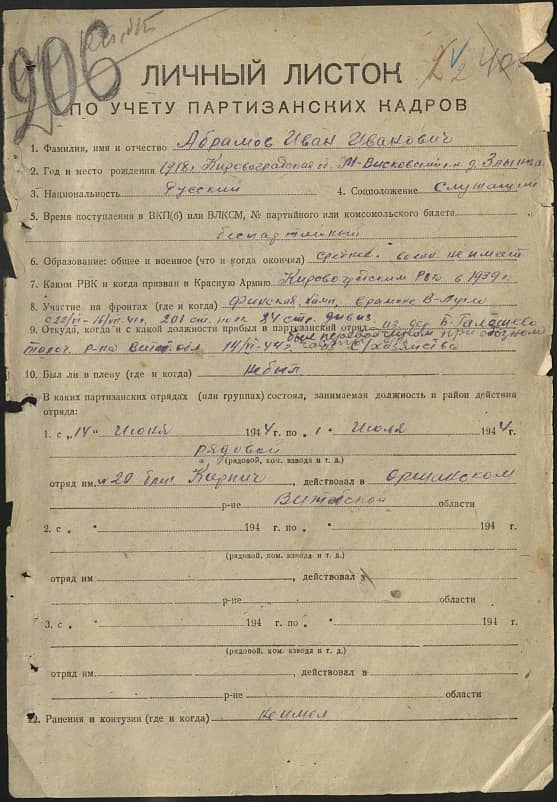 206
ЛИЧНЫЙ ЛИСТОК
ПО УЧЕТУ ПАРТИЗАНСКИХ КАДРОВ
1. Фамилия, имя и отчество Абрамов Иван Иванович
2. Год и место рождения 1918г. Кировоградская М-Висковский д. Злынка
3. Национальность Русский 4. Соцположение Служащий
5. Время поступления в ВКП(б) или ВЛКСМ, № партийного или комсомольского билета
беспартийный
6. Образование: общее и военное (что и когда окончил) среднее. не имеет
7. Каким РВК и когда призван в Красную Армию Кировоградским Рвк в 1939г.
8. Участие на фронтах (где и когда) Финская
201 ст. полк 84 стр. дивиз
9. Откуда, когда и с какой должности прибыл в партизанский отряд из дер
р-на 14/VI-44г. с/хозяйства
10. Был ли в плену (где и когда) не был
В каких партизанских отрядах (или группах) состоял, занимаемая должность и район действия
отряда:
1. с „14" Июня 1944 г. по „1" Июля 1944 г.
рядовой
(рядовой, ком. взвода и т. д.)
отряд им. №20 бриг , действовал в Оршанском
р-не Витебской области
2. с „ " 194 г. по „ " 194 г.
(рядовой, ком. взвода и т. д.)
отряд им , действовал в
р-не области
3. с „ " 194 г. по „ " 194 г.
(рядовой, ком. взвода и т. д.)
отряд им. , действовал в
р-не области
12. Ранения и контузии (где и когда) не имел